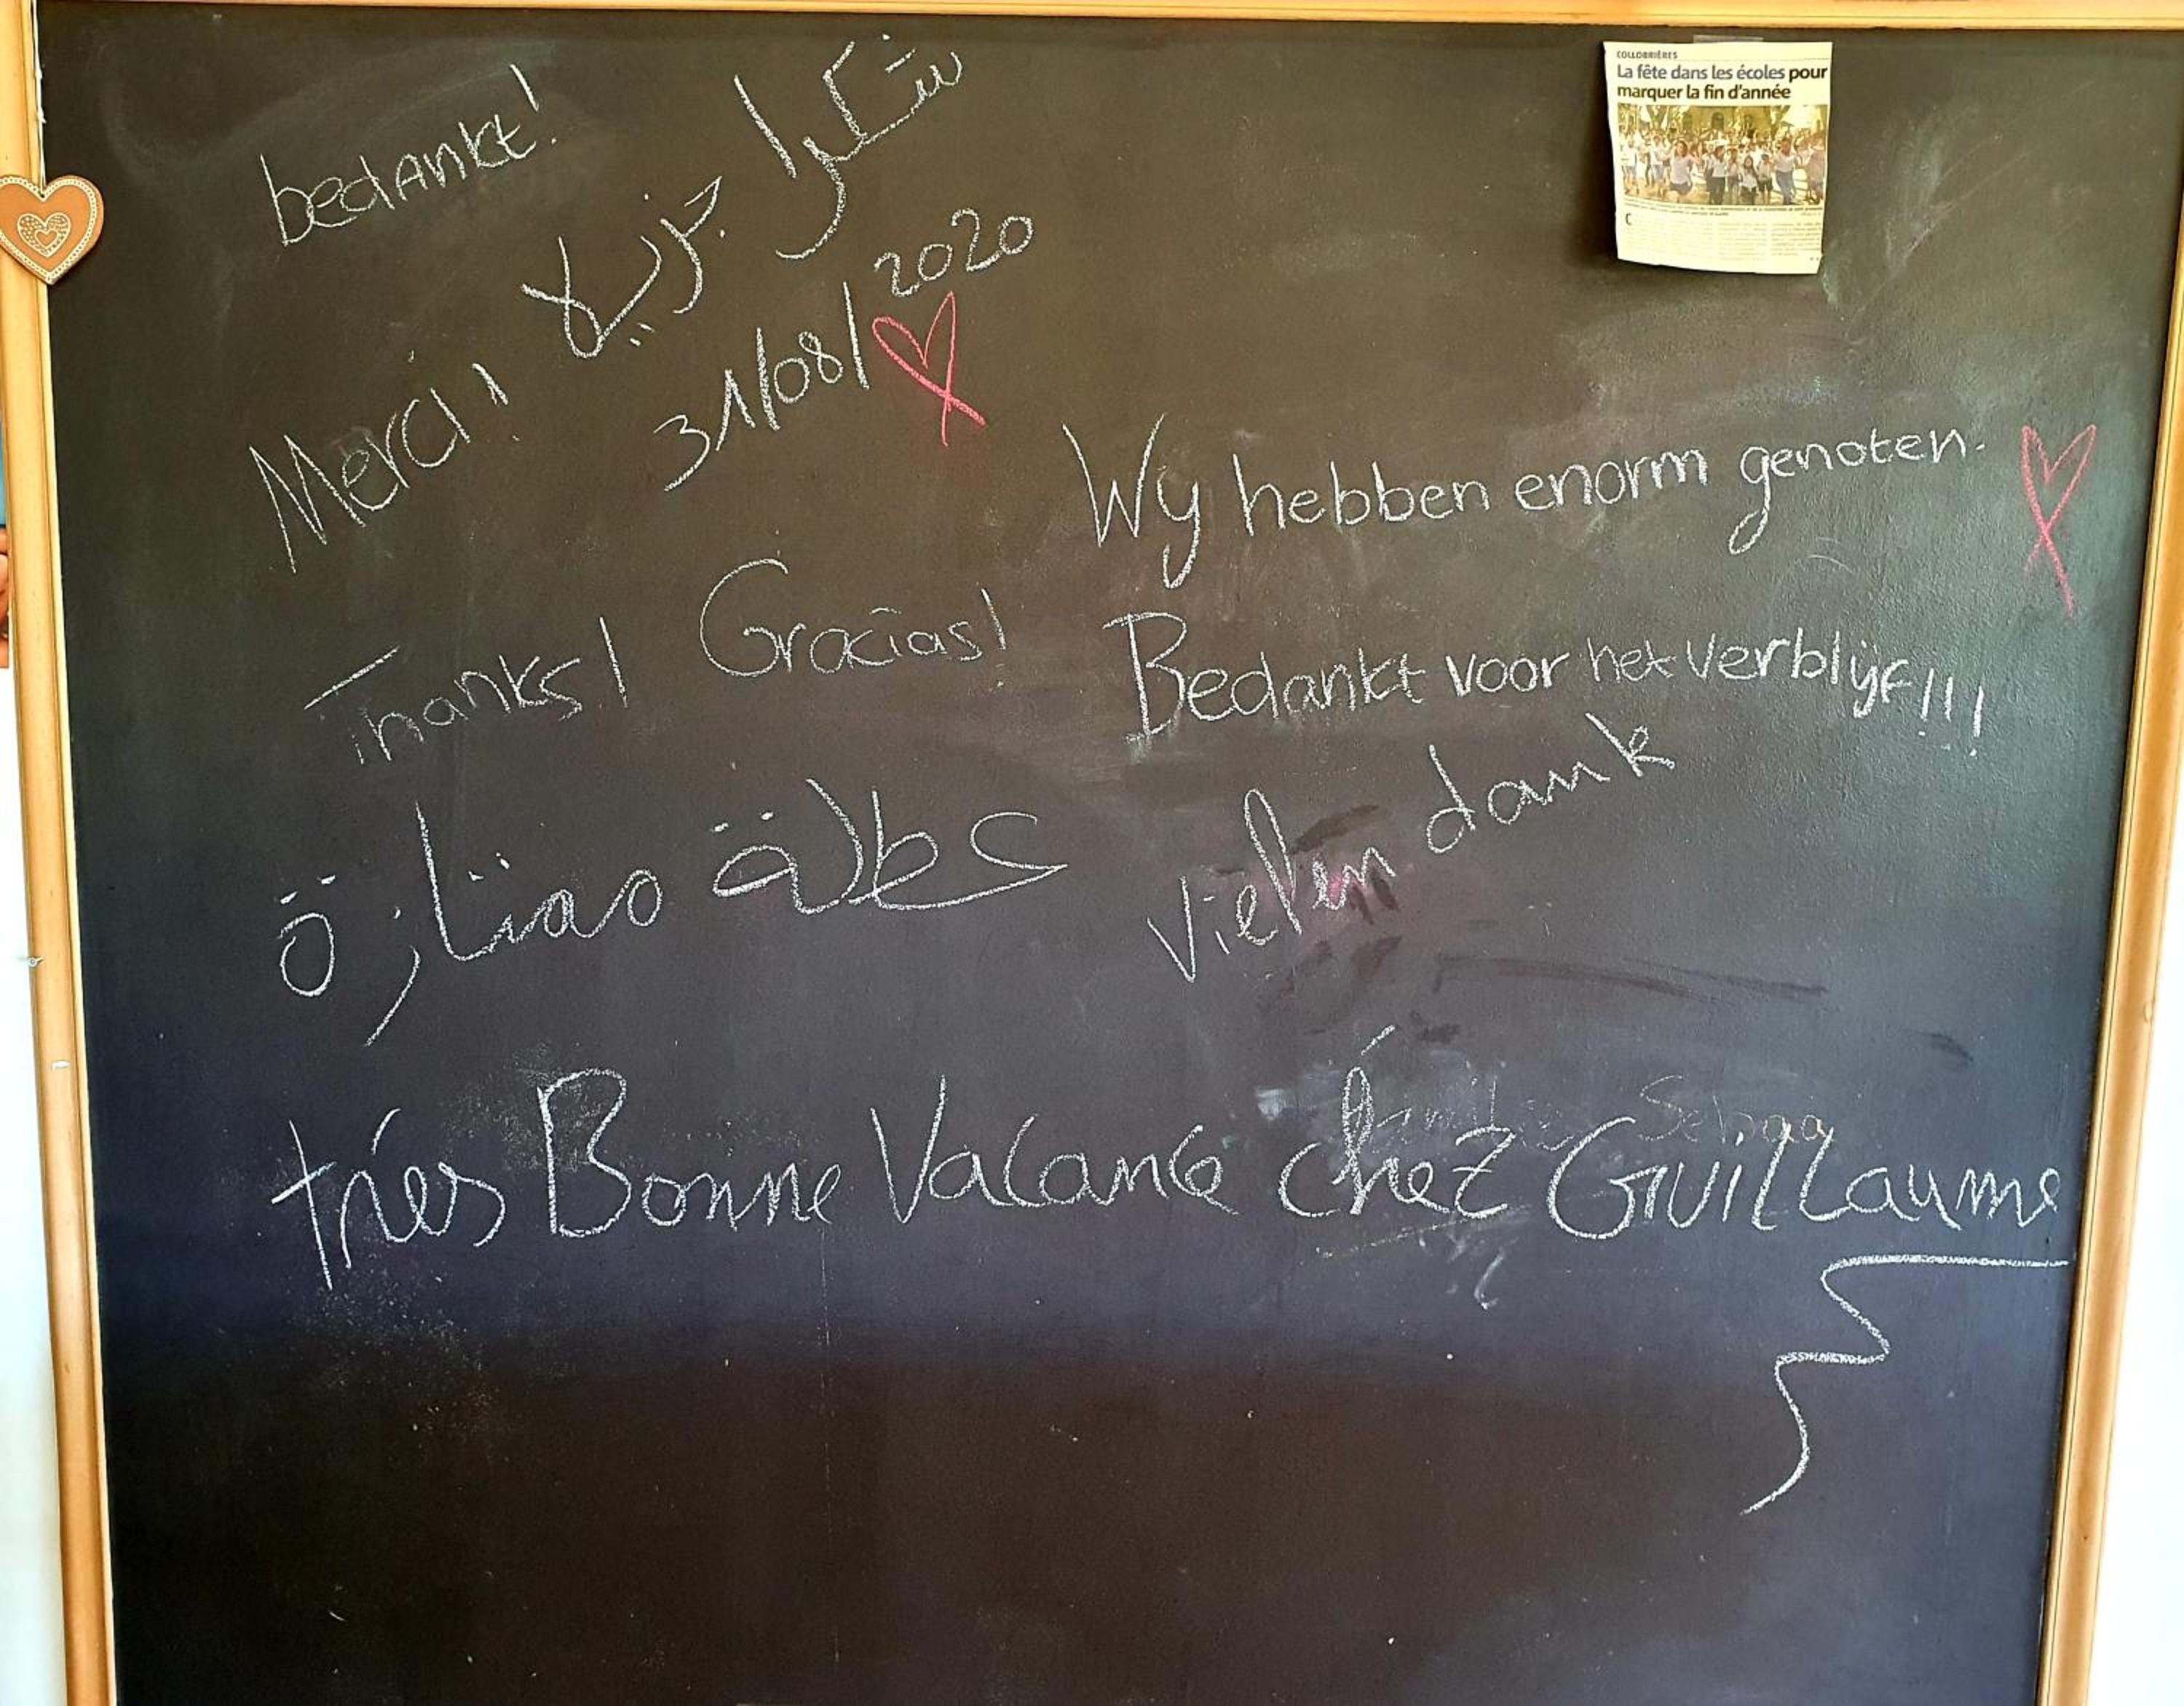 bedankt!
شكرا جزيلا
COLLOBRIÈRES
La fête dans les écoles pour
marquer la fin d'année
31/08/2020
Merci!
Wy hebben enorm genoten.
Thanks! Gracias!
Bedankt voor het verblijf!!!
vielen dank
عطلة ممتازة
trés Bonne Vacance chez Guillaume